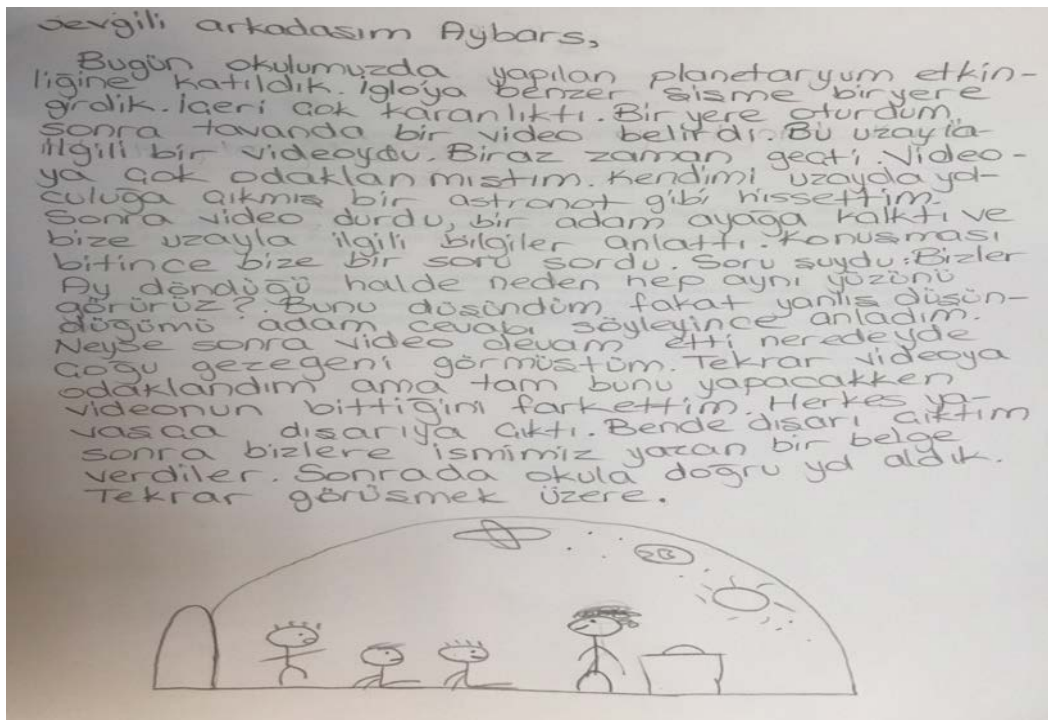 Sevgili arkadaşım Aybars,
Bugün okulumuzda yapılan planetaryum etkin-
liğine katıldık. İgloya benzer şişme bir yere
girdik. İçeri çok karanlıktı. Bir yere oturdum
sonra tavanda bir video belirdi. Bu uzayla
ilgili bir videoydu. Biraz zaman geçti. Video-
ya çok odaklanmıştım. Kendimi uzayda yol-
culuğa çıkmış bir astronot gibi hissettim.
Sonra video durdu, bir adam ayağa kalktı ve
bize uzayla ilgili bilgiler anlattı. Konuşması
bitince bize bir soru sordu. Soru şuydu: Bizler
Ay döndüğü halde neden hep aynı yüzünü
görürüz?. Bunu düşündüm fakat yanlış düşün-
düğümü adam cevabı söyleyince anladım.
Neyse sonra video devam etti neredeyde
çoğu gezegeni görmüştüm. Tekrar videoya
odaklandım ama tam bunu yapacakken
videonun bittiğini farkettim. Herkes ya-
vaşça dışarıya çıktı. Bende dışarı çıktım
sonra bizlere ismimiz yazan bir belge
verdiler. Sonrada okula doğru yol aldık.
Tekrar görüşmek üzere.